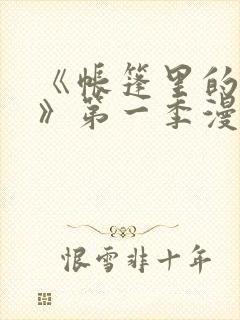 《帐篷里的
》第一季漫
恨雪非十年